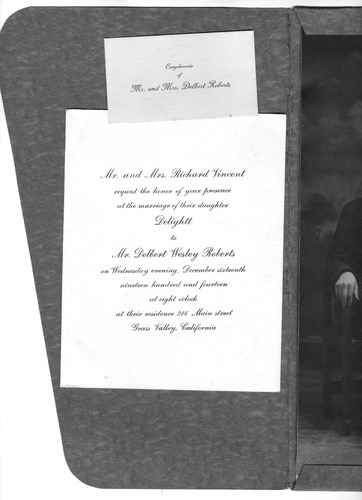 Compliments
of
Mr. and Mrs. Delbert Roberts
Mr. and Mrs. Richard Vincent
request the honor of your presence
at the marriage of their daughter
Delightt
to
Mr. Delbert Wesley Roberts
on Wednesday evening, December sixteenth
nineteen hundred and fourteen
at eight o'clock
at their residence 216 Main street
Grass Valley, California